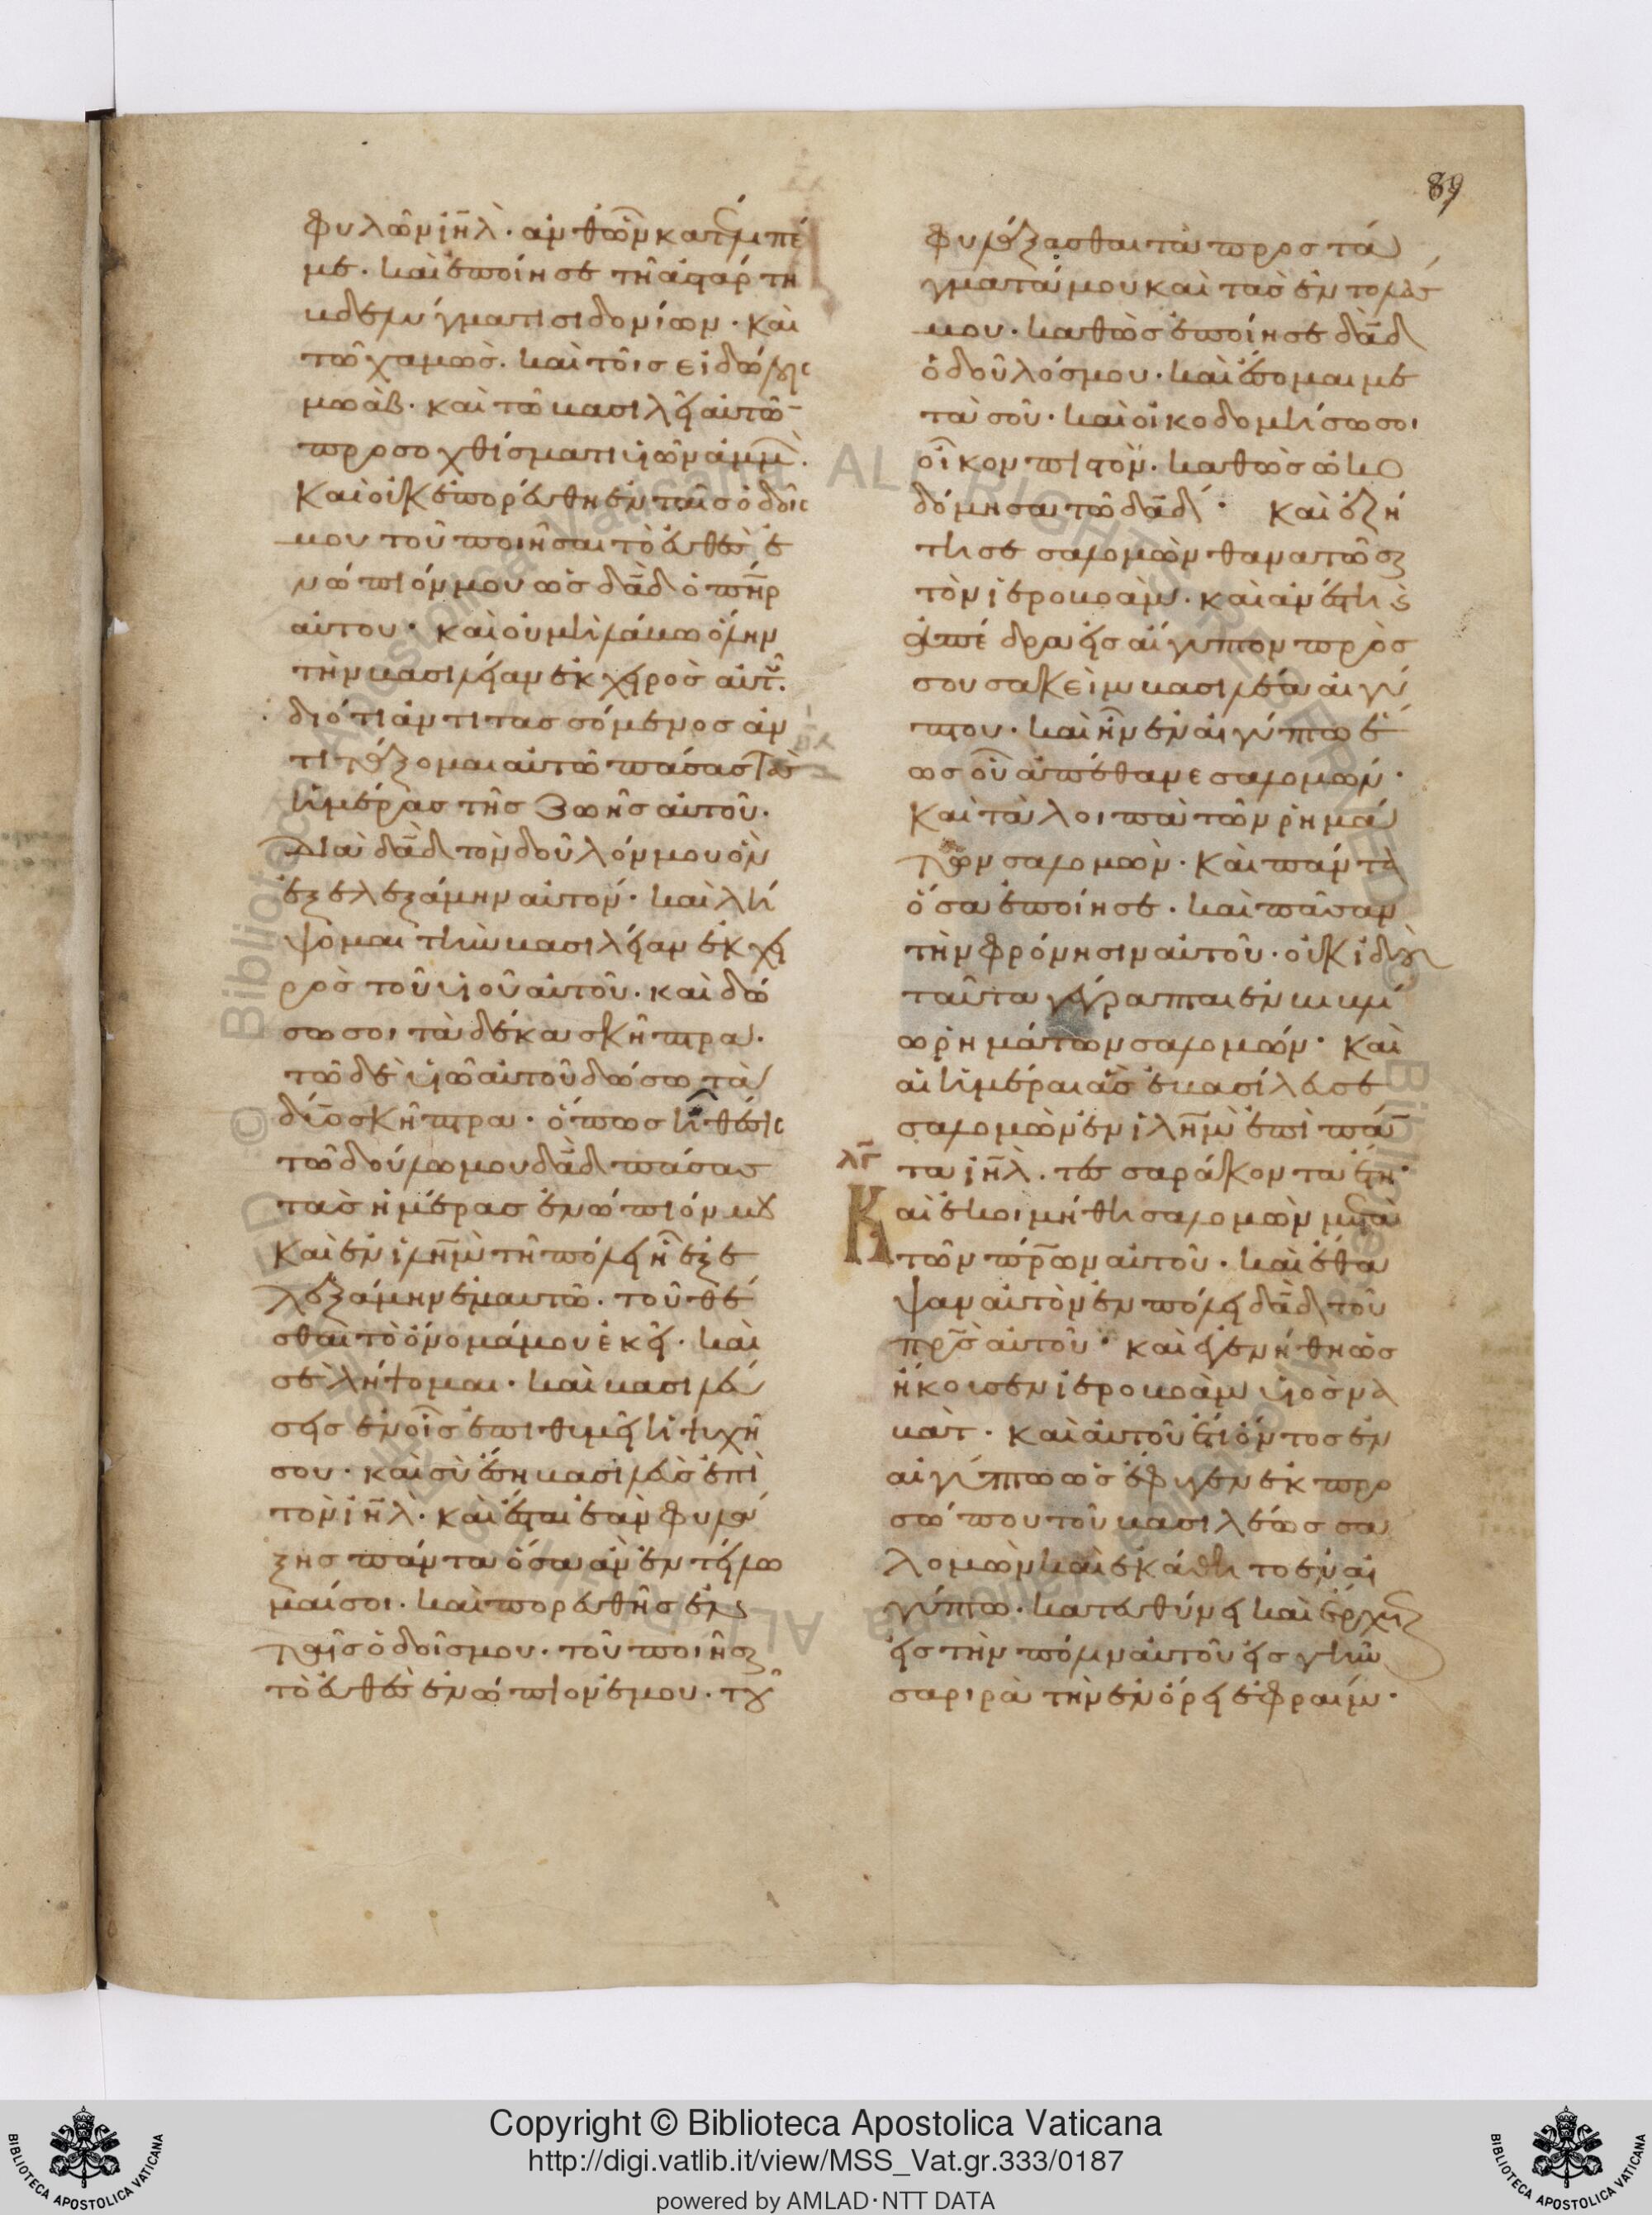 89
φυλῶν ιη̅λ· ἀνθὧν κατέλιπέ
με· καὶ ἐποίησε τῆ ἀστάρτη
βδελύγματι σιδονίων· καὶ
τῶ χαμὼς· καὶ τοῖς εἰδώλοις
μωὰβ· καὶ τῶ βασιλεῖ αὐτῶ̅
προσοχθίσματι υἱῶν ἀμμ̅·
Καὶ οὐκ ἐπορεύθη ἐν ταῖς ὁδοῖς
μου τοῦ ποιῆσαι τὸ εὐθὲς ἐ
νώπιόν μου ὡς δα̅δ ὁ πη̅ρ
αὐτου· καὶ οὐ μὴ λάβω ὅλην
τὴν βασιλείαν ἐκ χειρὸς αὐτ̅·
διότι ἀντιτασσόμενος ἀν
τιτάξομαι αὐτῶ πάσας τὰς
ἡμέρας τῆς ζωῆς αὐτοῦ·
Διὰ δα̅δ τὸν δοῦλόν μου ὃν
ἐξελεξάμην αὐτον· καὶ λή
ψομαι τὴν βασιλείαν ἐκ χει
ρὸς τοῦ υἱοῦ αὐτοῦ· καὶ δώ
σω σοι τὰ δέκα σκῆπτρα·
τῶ δὲ υἱῶ αὐτοῦ δώσω τὰ
δύο σκῆπτρα· ὅπως ἦ θέσις
τῶ δούλω μου δα̅δ πάσας
τὰς ἡμέρας ἐνώπιόν μου
Καὶ ἐν ιλη̅μ τῆ πόλει ἣ ἐξε
λεξάμην ἐμαυτῶ· τοῦ θέ
σθαι τὸ ὄνομά μου ἐκεῖ· καὶ
σὲ λήψομαι· καὶ βασιλεύ
σεις ἐν οἷς ἐπιθυμεῖ ἡ ψυχή
σου· καὶ σὺ ἔση βασιλεὺς ἐπὶ
τὸν ιη̅λ· καὶ ἔσται ἐὰν φυλά
ξης πάντα ὅσα ἂν ἐντείλω
μαί σοι· καὶ πορευθῆς ἐν
ταῖς ὁδοῖς μου· τοῦ ποιῆσαι
τὸ εὐθὲς ἐνώπιον ἐμου· τοῦ
φυλάξασθαι τὰ προστά
γματά μου καὶ τὰς ἐντολάς
μου· καθὼς ἐποίησε δα̅δ
ὁ δοῦλός μου· καὶ ἔσομαι με
τὰ σοῦ· καὶ οἰκοδομήσω σοι
οἶκον πιστὸν· καθὼς ὠκο
δόμησα τῶ δα̅δ· καὶ ἐζή
τησε σαλομὼν θανατῶσαι
τὸν ἱεροβοὰμ· καὶ ἀνέστη καὶ
ἀπέδρα εἰς αἴγυπτον πρὸς
σουσακεὶμ βασιλέα αἰγύ
πτου· καὶ ἦν ἐν αἰγύπτω ἕ
ως οὗ ἀπέθανε σαλομών·
Καὶ τὰ λοιπὰ τῶν ῥημά
των σαλομὼν· καὶ πάντα
ὅσα ἐποίησε· καὶ πᾶσαν
τὴν φρόνησιν αὐτοῦ· οὐκ ἰδοὺ
ταῦτα γέγραπται ἐν βιβλί
ω ῥημάτων σαλομών· καὶ
αἱ ἡμέραι ἃς ἐβασίλευσε
σαλομὼν ἐν ιλη̅μ ἐπὶ πάν
τα ιη̅λ· τεσσαράκοντα ἔτη·
λγ̅
Καὶ ἐκοιμήθη σαλομὼν μετὰ
τῶν πρ̅ων αὐτοῦ· καὶ ἔθα
ψαν αὐτὸν ἐν πόλει δα̅δ τοῦ
πρ̅ς αὐτοῦ· καὶ ἐγενήθη ὡς
ἤκουσεν ἱεροβοὰμ υἱὸς να
βὰτ· καὶ αὐτοῦ ἔτι ὄντος ἐν
αἰγύπτω ὡς ἔφυγεν ἐκ προ
σώπου τοῦ βασιλέως σα
λομὼν καὶ ἐκάθητο ἐν αἰ
γύπτω· κατευθύνει καὶ ἔρχεται
εἰς τὴν πόλιν αὐτοῦ εἰς γῆν
σαριρὰ τὴν ἐν ὄρει ἐφραίμ·
Copyright © Biblioteca Apostolica Vaticana
http://digi.vatlib.it/view/MSS_Vat.gr.333/0187
powered by AMLAD·NTT DATA
BIBLIOTECA APOSTOLICA VATICANA
BIBLIOTECA APOSTOLICA VATICANA